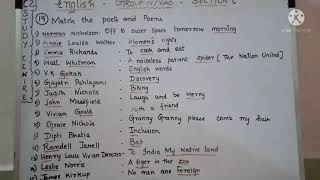 English - GROUP IV/VAO - SECTION C
STUDY CENTRE
(19) Match the poets and Poems
1) Norman Nicholson Off to outer space tomorrow morning
2) Annie Louisa Walker - Women's rights
3) Emma Richards - To cook and eat
4) Walt Whitman - A noiseless patient spider [The Nation United]
5) V.K Gokak - English words
6) Gajatri Pahlajani - Discovery
7) Judith Nicholls - Biking
8) John Masefield - Laugh and be Merry
9) Vivian Gould - with a friend
10) Grace Nicholas - Granny Granny please comb my hair
11) Dipti Bhatia - Inclusion
12) Randell Janell - Bat
13) Henry Louis Vivian Derozio - To India My Native land
14) Leslie Norris - A tiger in the zoo
15) James Kirkup - No men are Foreign